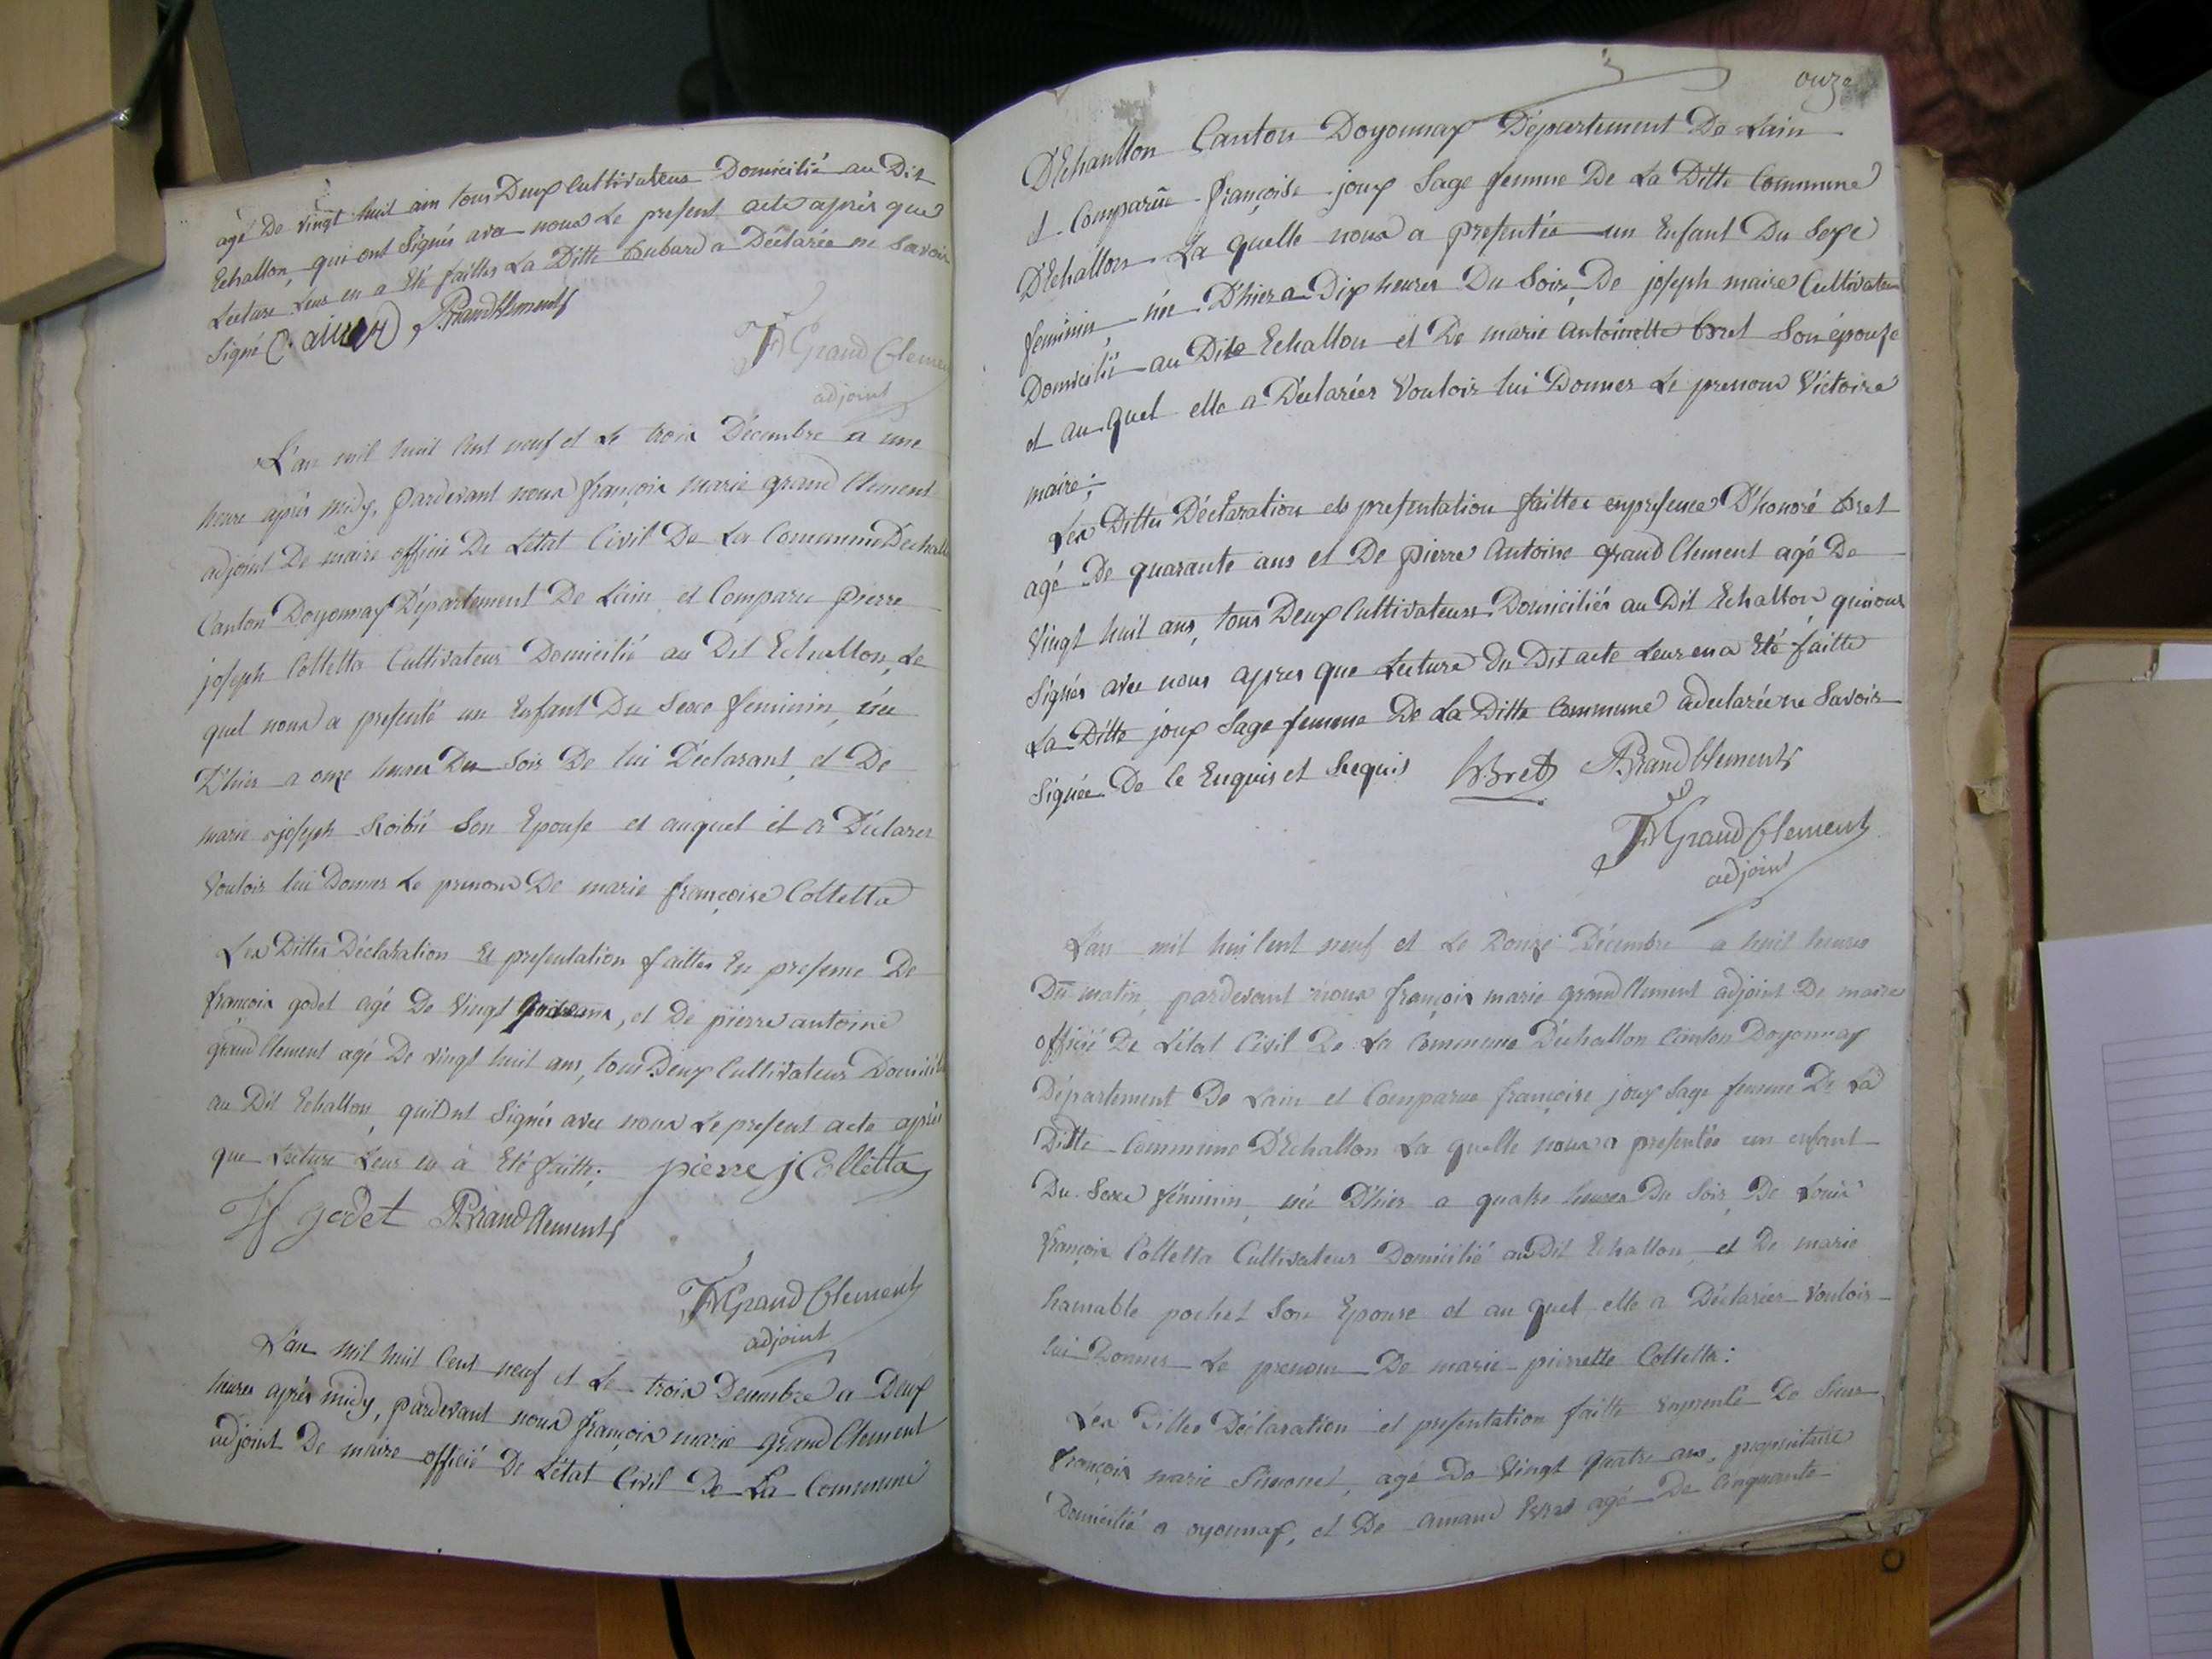 agé De vingt huit ans tous Deux Cultivateurs Domicilié au Dit
Echallon, qui ont Signés avec nous Le present acte après que
Lecture Leur en a Eté faittes La Ditte Bubard a Déclarée ne Savoir
Signé C. P.Grandclement
FMGrand Clement
adjoint
L'an mil huit Cent neuf et Le trois Décembre a une
heure après midy, pardevant nous françois marie grand Clement
adjoint De maire officié De L'état Civil De La Commune D'echallon
Canton Doyonnax Département De L'ain et Comparu pierre
joseph Colletta Cultivateur Domicilié au Dit Echallon, Le
quel nous a presenté un Enfant Du Sexe feminin, née
D'hier a onze heures Du Soir De lui Déclarant, et De
marie joseph Son Epouse et auquel il a Déclarer
Vouloir lui Donner Le prenom De marie françoise Colletta
Les Dittes Déclaration Et presentation faittes En presence De
françois godet agé De Vingt ans, et De pierre antoine
grand Clement agé De vingt huit ans, tous Deux Cultivateurs Domicilié
au Dit Echallon, qui Ont Signés avec nous Le present acte après
que Lecture Leur en à Eté faitte; pierre j Colletta
godet P.Grandclement
FMGrand Clement
adjoint
L'an mil huit Cent neuf et Le trois Decembre a Deux
heures après midy, pardevant nous françois marie grand Clement
adjoint De maire officié De L'état Civil De La Commune
onze
D'Echanllon Canton Doyonnax Département De Lain
et Comparüe françoise joux Sage femme De La Ditte Commune
D'Echallon La quelle nous a presentée un Enfant Du Sexe
feminin, née D'hier a Dix heures Du Soir, De joseph maire Cultivateur
Domicilié au Dit Echallon et De marie Antoinette Bret Son épouse
et au quel elle a Déclarées Vouloir lui Donner Le prenom Victoire
maire;
Les Dittes Déclaration et presentation faittes en presence D'honoré Bret
agé De quarante ans et De pierre Antoine grand Clement agé De
Vingt huit ans, tous Deux Cultivateurs Domiciliés au Dit Echallon, qui ont
Signés avec nous apres que Lecture Du Dit acte Leur en a Eté faitte
La Ditte joux Sage femme De La Ditte Commune a declarée ne Savoir
Signée De Ce Enquis et Requis hBret P.Grandclement
FMGrand Clement
adjoint
L'an mil huit Cent neuf et Le Douze Décembre a huit heures
Du matin, pardevant nous françois marie grand Clement adjoint De maire
officié De L'état Civil De La Commune D'echallon Canton Doyonnax
Département De Lain et Comparue françoise joux Sage femme De La
Ditte Commune D'Echallon La quelle nous a presentée un enfant
Du Sexe féminin, née D'hier a quatre heures Du Soir, De Louis
françois Colletta Cultivateur Domicilié au Dit Echallon et De marie
hamable pochet Son Epouse et au quel elle a Déclarées Vouloir
lui Donner Le prenom De marie pierrette Colletta:
Les Dittes Déclaration et presentation faitte De Sieur
françois marie Simonet, agé De Vingt quatre ans, proprietaire
Domicilié a oyonnax, et De amand agé De Cinquante